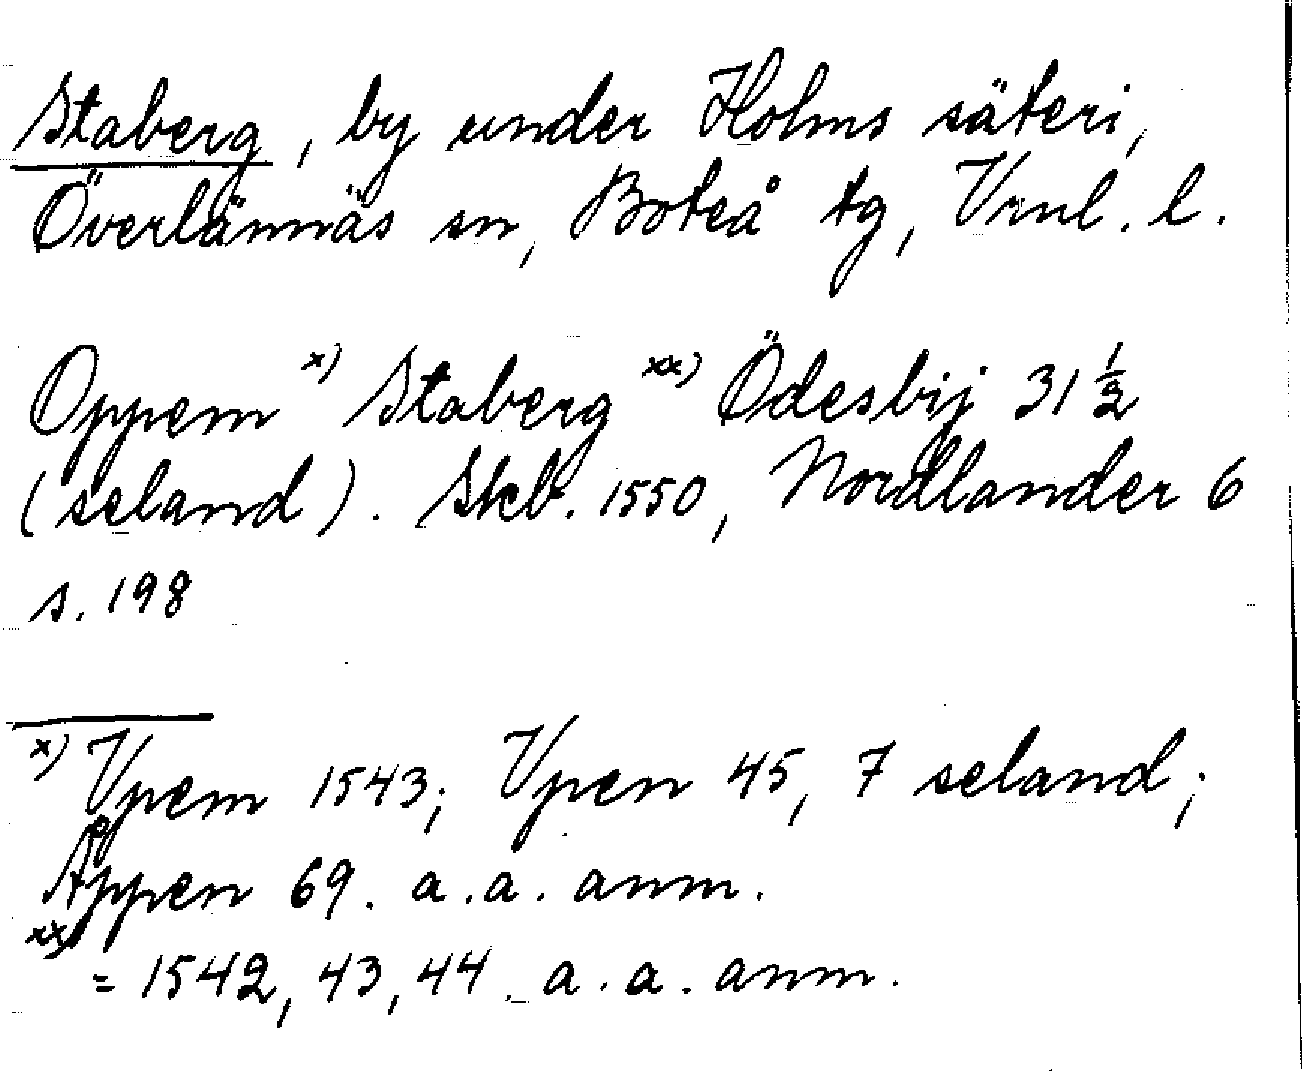 Staberg, by under Holms säteri,
Överlännäs sn, Boteå tg, Vrnl. l.
Oppem x) Staberg xx) Ödesbij 31 ½
(seland). Skb. 1550, Nordlander 6
s. 198
x) Vpem 1543; Vpen 45, 7 seland;
Åppen 69. a.a. anm.
xx) = 1542, 43, 44. a.a. anm.